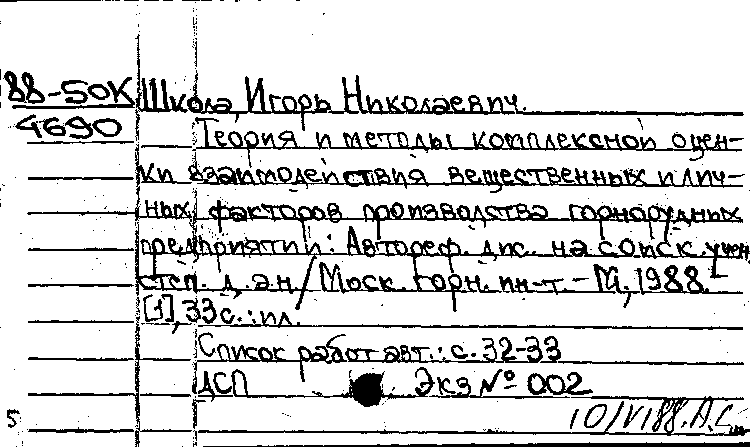 88-50К Школа, Игорь Николаевич.
4690
Теория и методы комплексной оцен-
ки взаимодействия вещественных и лич-
ных факторов производства горнорудных
предприятий: Автореф. дис. на соиск. учен.
степ. д. эн / Моск. горн. ин-т. - М., 1988.
[1], 33 с.: ил.
Список работ авт.: с. 32-33
ДСП Экз № 002
5 10/VI88. А.С.